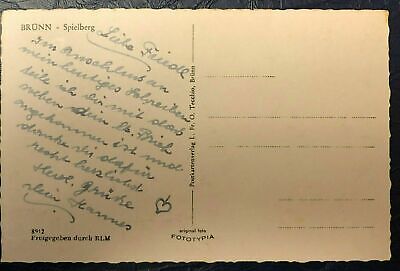 BRÜNN - Spielberg
Liebe Friedl
Im Anschluss an
mein heutiges Schreiben
teile ich dir mit das
neben dem
angekommen ist und
danke dir dafür
recht herzlichst
Herzl. Grüße
dein Hannes
8912
Freigegeben durch RLM
Postkartenverlag L. Fr. O. Tesches, Brünn
original foto
FOTOTYPIA